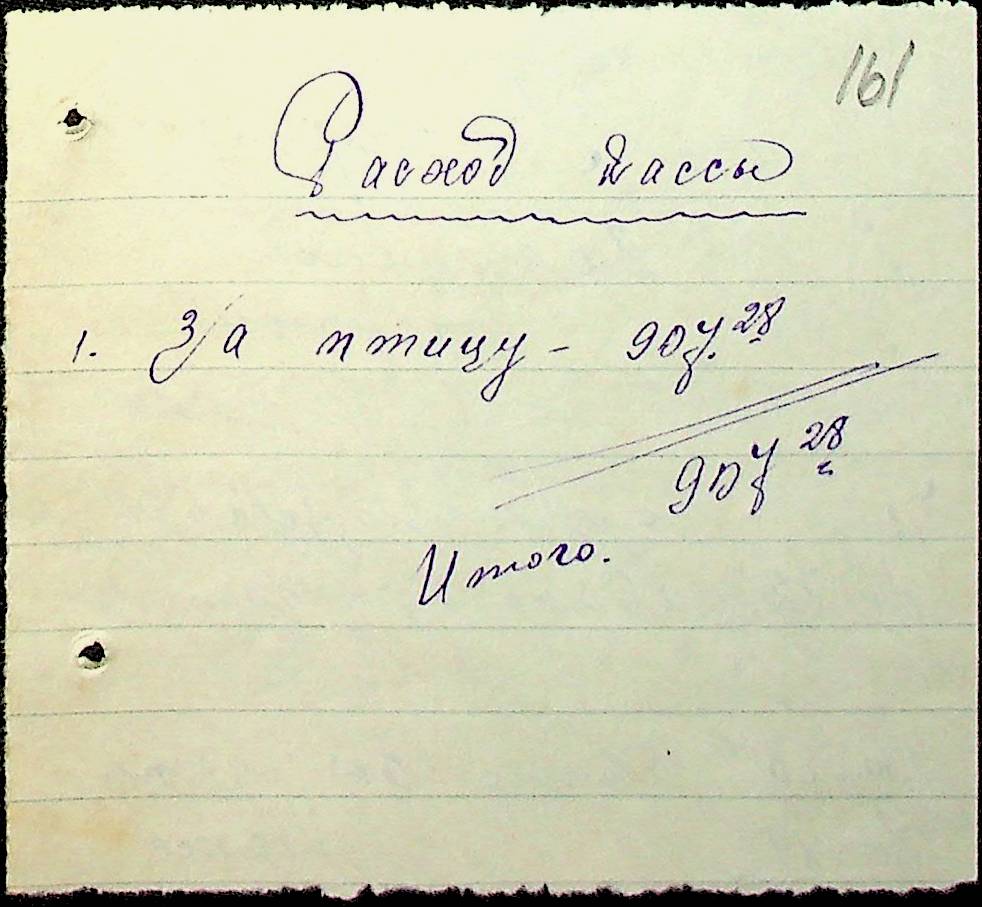 161
Расход кассы
1. За птицу – 90р. 28
90р 28 к
Итого.